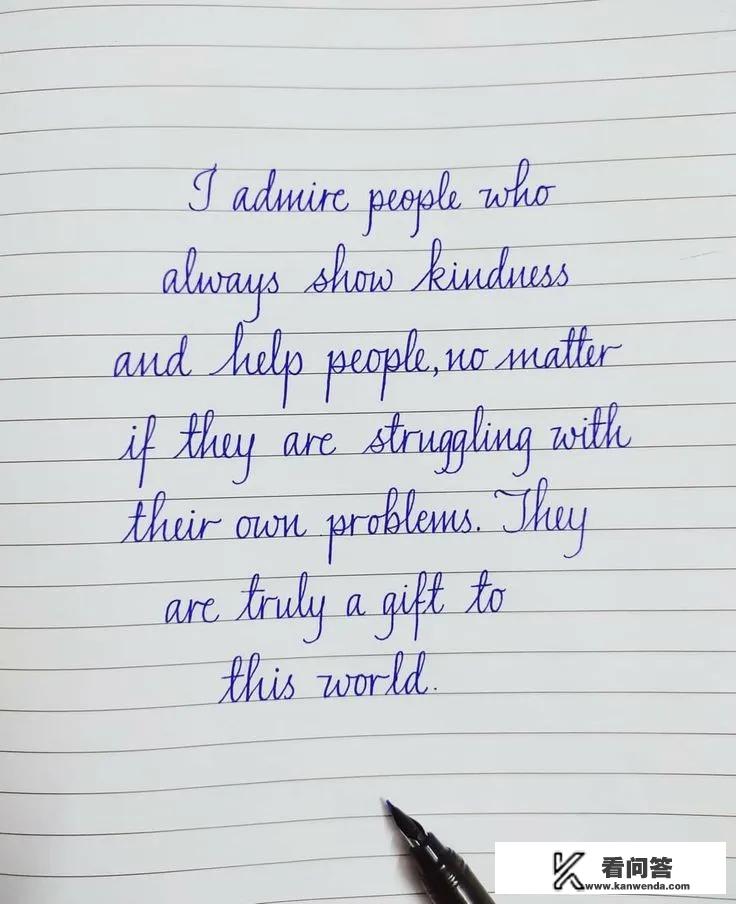 I admire people who
always show kindness
and help people, no matter
if they are struggling with
their own problems. They
are truly a gift to
this world.
K 看问答
www.kanwenda.com